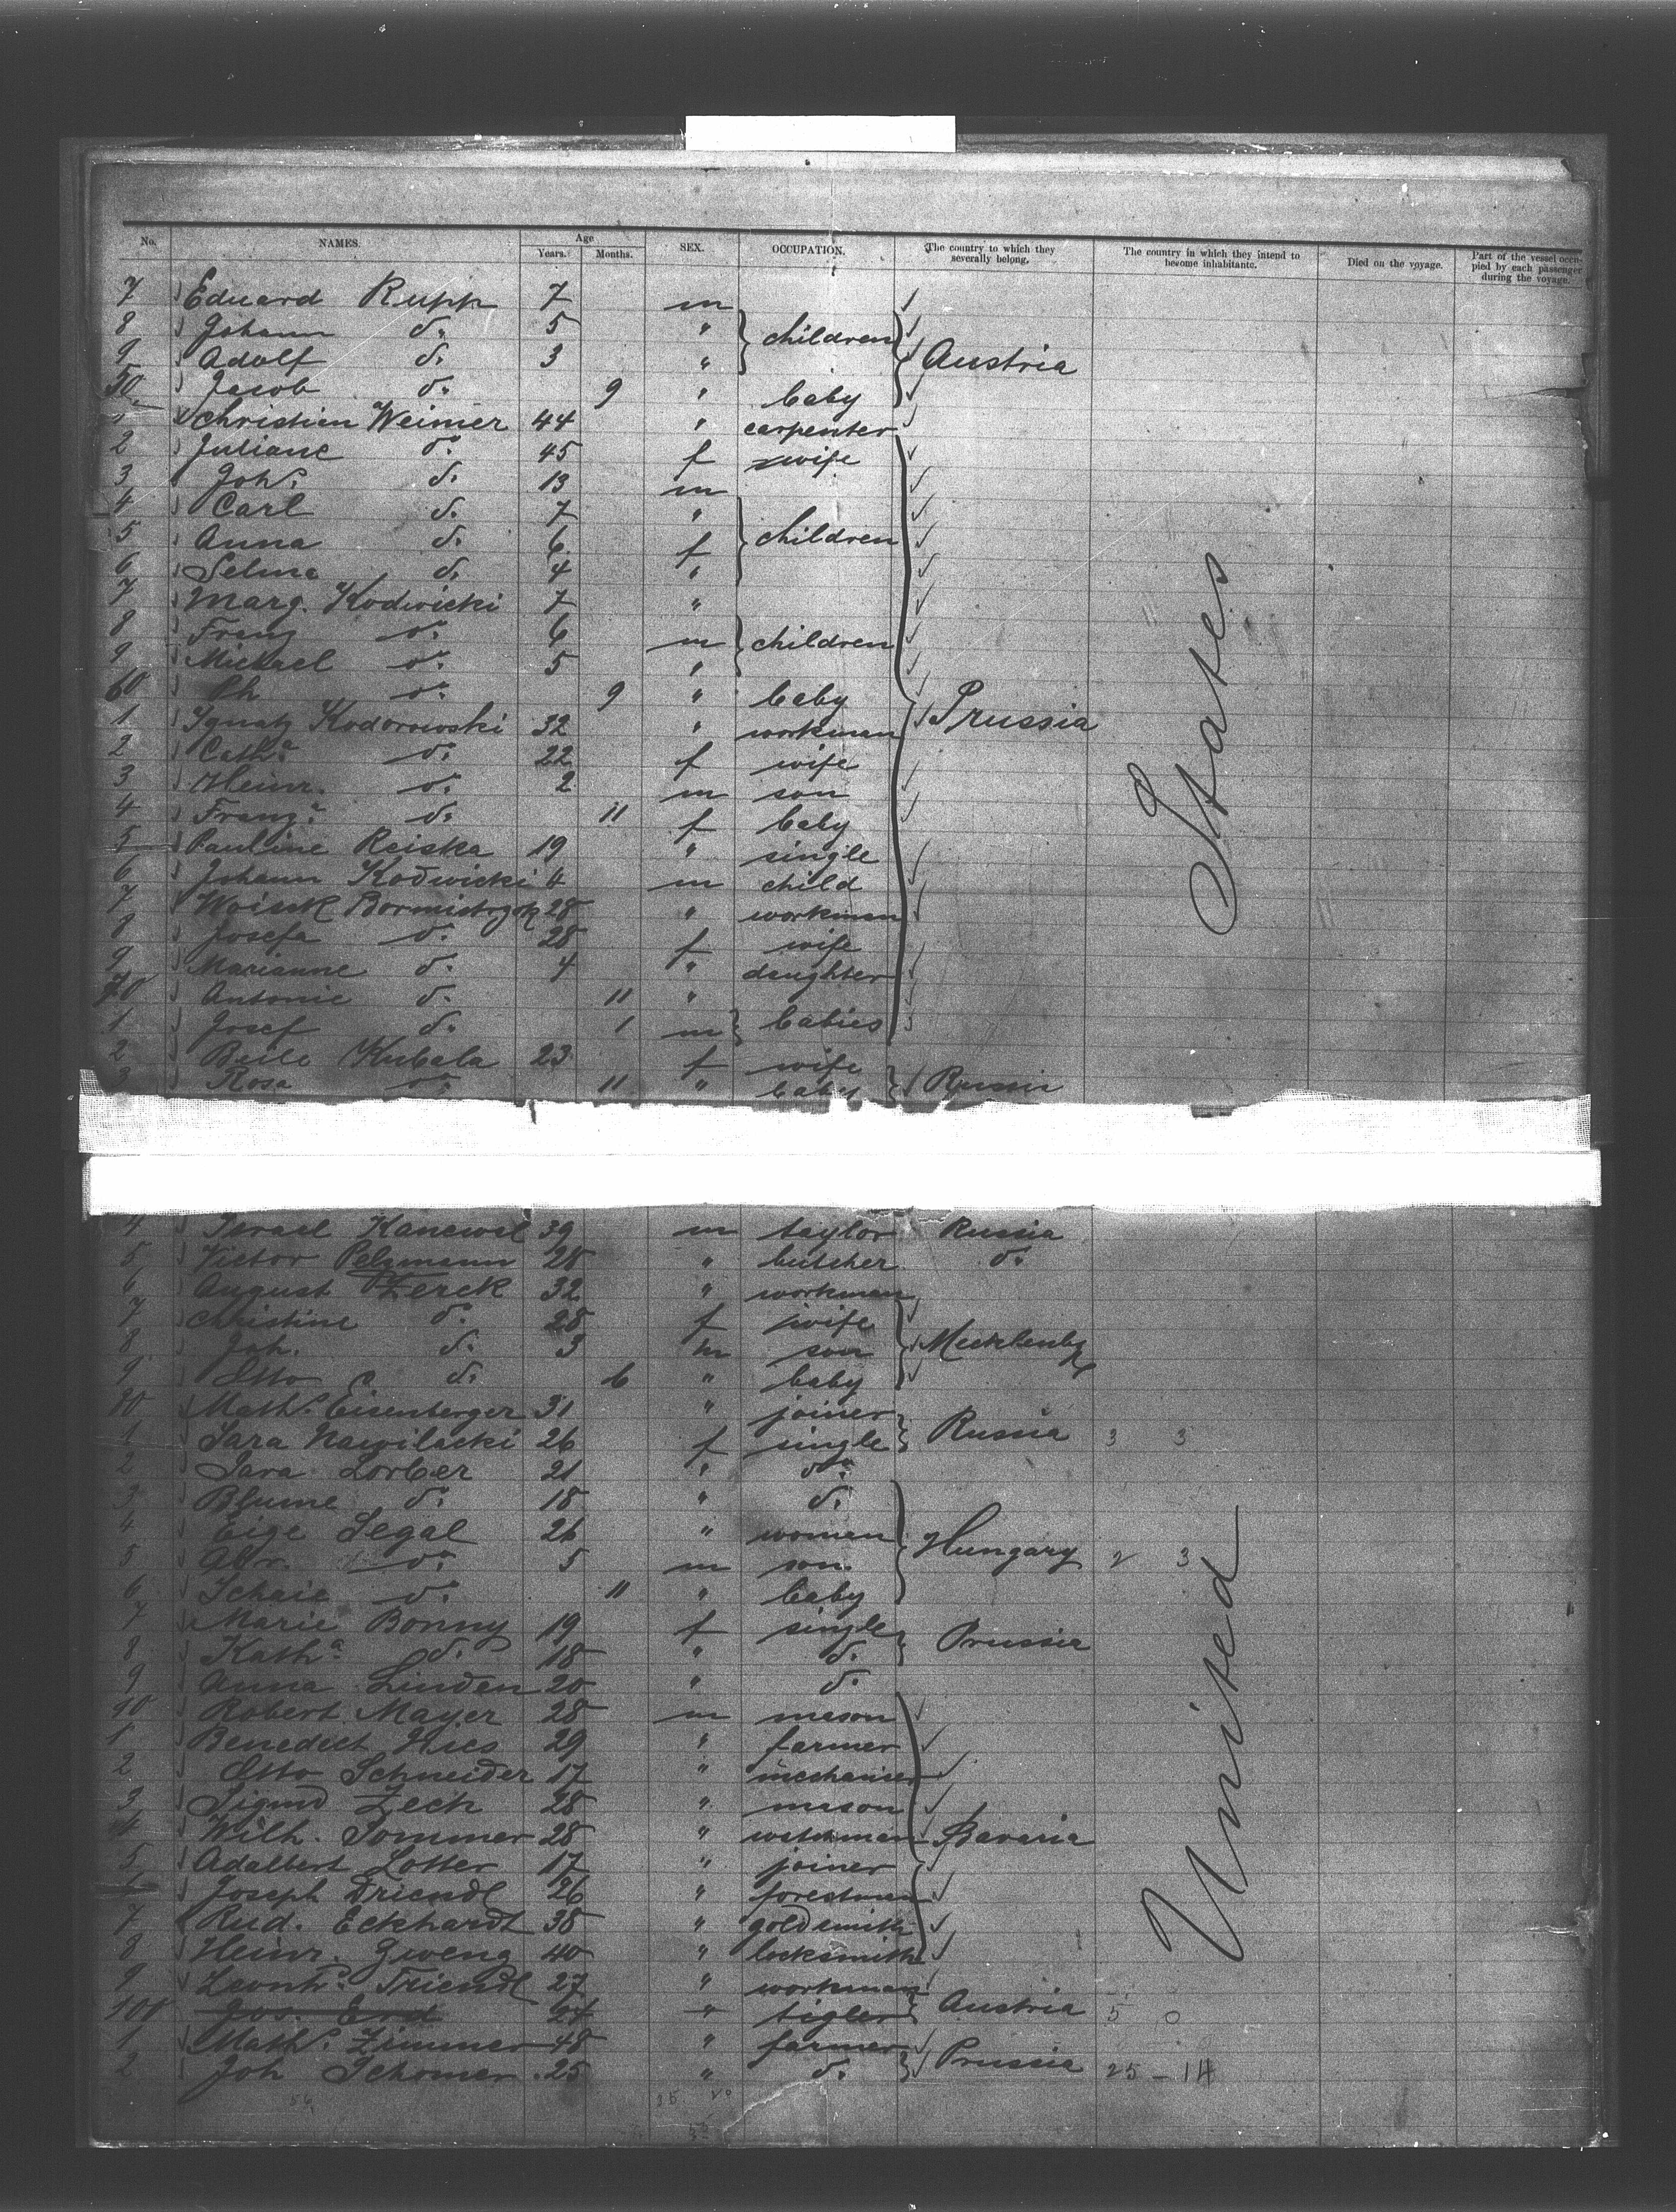 No. NAMES. Age Years. Months. SEX. OCCUPATION. The country to which they severally belong. The country in which they intend to become inhabitants. Died on the voyage. Part of the vessel occupied by each passenger during the voyage.
7 Eduard Rupp 7 m
8 Johann do. 5 " children
9 Adolf do. 3 " Austria
50 Jacob do. 9 " baby
1 Christian Weimer 44 " carpenter
2 Juliane do. 45 f wife
3 Joh. do. 13 m
4 Carl do. 7 "
5 Anna do. 6 f children
6 Selma do. 4 "
7 Marg. Kodwicki 7 "
8 Franz do. 6 m children
9 Michael do. 5 "
60 Ph do. 9 " baby
1 Ignatz Kodorowski 32 " workman Prussia
2 Cath.a do. 22 f wife
3 Heinr. do. 2 m son
4 Franz.a do. 11 f baby
5 Pauline Reiska 19 " single
6 Johann Kodwicki 4 m child
7 28 " workman
8 Josefa do. 28 f wife
9 Marianne do. 4 " daughter
70 Antonie do. 11 "
1 Josef do. 1 m babies
2 Beile Kubala 23 f wife
3 Rosa do. 11 " baby Russia
States
4 Israel 39 m taylor Russia
5 Victor Pelzmann 28 " butcher do.
6 August 32 " workman
7 Christine do. 28 f wife
8 Joh. do. 3 m son Mecklenbg
9 Otto do. 6 " baby
80 Math. Eisenberger 31 " joiner
1 Sara 26 f single Russia 3 3
2 Sara Lorber 21 " do.
3 Blume do. 18 " do.
4 Eige Segal 26 " women
5 Abr. do. 5 m son Hungary 2 3
6 Schaie do. 11 " baby
7 Marie Bonny 19 f single
8 Kath.a do. 18 " do. Prussia
9 Anna Linden 20 " do.
90 Robert Mayer 28 m mason
1 Benedict Hies 29 " farmer
2 Otto Schneider 17 "
3 Sigmd Zech 28 " mason
4 Wilh. Sommer 28 " Bavaria
5 Adalbert Lotter 17 " joiner
6 Joseph Triendl 26 " forestman
7 Rud. Eckhardt 38 " goldsmith
8 Heinr. Zweng 40 " locksmith
9 Leonh. Triendl 27 " workman
100 Jos. Erd 24 " tigler Austria 5 0
1 Math. Zimmer 48 " farmer
2 Joh Schomer 25 " do. Prussia 25 - 14
United